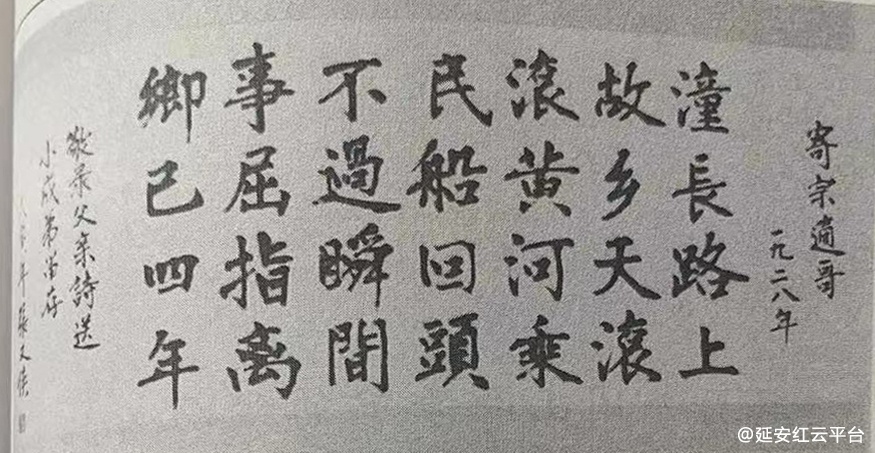 寄宗逍哥
一九二八年
潼長路上
故乡天滚
滚黄河乘
民船回頭
不過瞬間
事屈指离
鄉已四年
敬录父亲詩送
小成弟留存
年張又俠
@延安红云平台